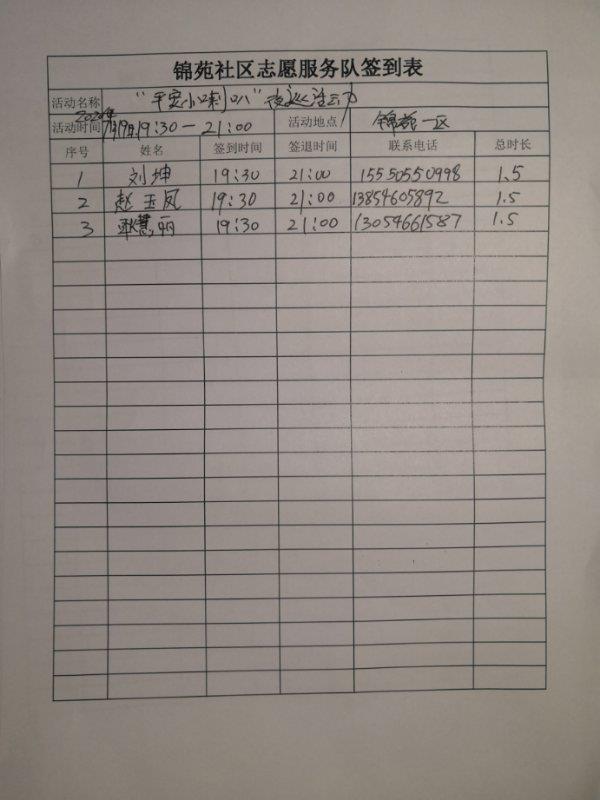 锦苑社区志愿服务队签到表
活动名称 “平安小喇叭”夜巡活动
活动时间 2020年7月19日19:30—21:00 活动地点 锦苑一区
序号 姓名 签到时间 签退时间 联系电话 总时长
1 刘坤 19:30 21:00 15550550998 1.5
2 赵玉凤 19:30 21:00 13854605892 1.5
3 耿慧丽 19:30 21:00 13054661587 1.5